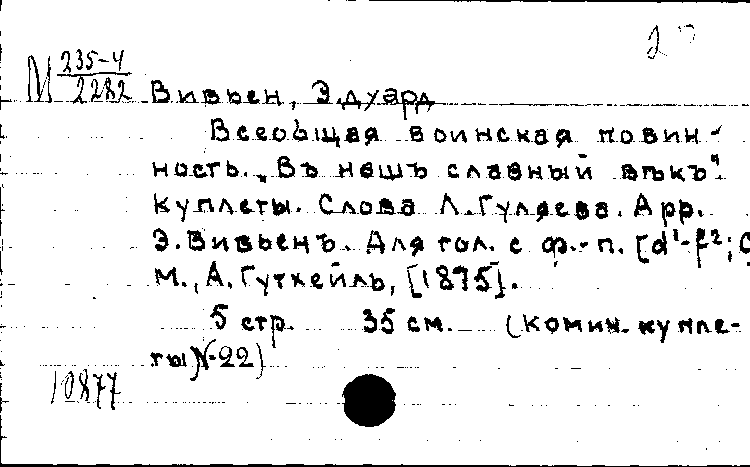 М 235-4
2282
Вивьен, Эдуард
Всеобщая воинская повин-
ность. „Въ нашъ славный вѣкъ".
Куплеты. Слова Л. Гуляева. Арр.
Э. Вивьенъ. Для гол. с ф.-п. [d¹-f²; C
М., А. Гутхейль, [1875].
5 стр. 35 см. (Комич. купле-
ты № 22)
10877